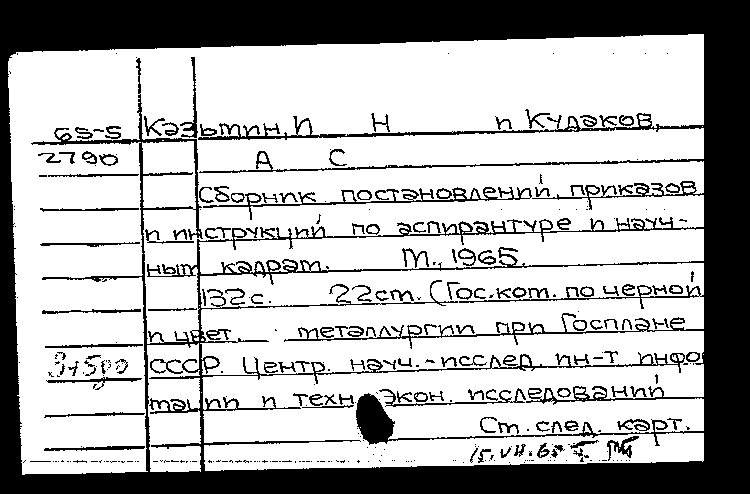 65-5 Казьмин, И Н и Кудаков,
2790 А С
Сборник постановлений, приказов
и инструкций по аспирантуре и науч-
ным кадрам. М., 1965.
132с. 22см. (Гос.ком. по черной
и цвет. металлургии при Госплане
СССР. Центр. науч.-исслед. ин-т инфо
мации и техн экон. исследований
См. след. карт.
15.VII.65